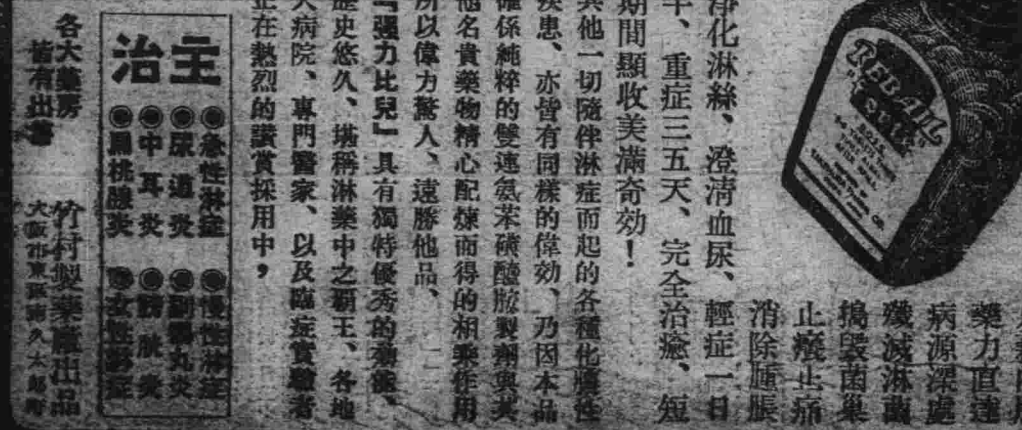 REBAIL
藥力直達
病源深處
殲滅淋菌
搗毀菌巢
止癢止痛
消除腫脹
淨化淋絲、澄淸血尿、輕症一日
重症三五天、完全治癒、短
期間顯收美滿奇効!
其他一切隨伴淋症而起的各種化膿性
疾患、亦皆有同樣的偉効、乃因本品
確係純粹的雙連氨苯磺醯胺製劑與其
他名貴藥物精心配煉而得的相乘作用
所以偉力驚人、遠勝他品、
『强力比兒』具有獨特優秀的効能、
歷史悠久、堪稱淋藥中之霸王、各地
大病院、專門醫家、以及臨症實驗者
正在熱烈的讚賞採用中,
主治
◉急性淋症 ◉慢性淋症
◉尿道炎 ◉副睪丸炎
◉中耳炎 ◉膀胱炎
◉扁桃腺炎 ◉女性淋症
各大藥房
皆有出售
竹村製藥廠出品
大阪市東區南久太郎町